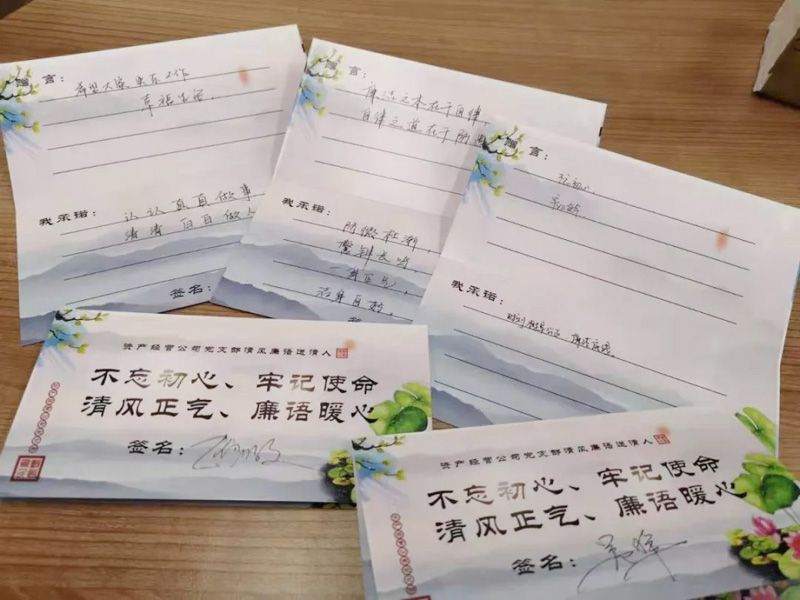 赠言：
希望大家 快乐工作
幸福生活。
我承诺：
认认真真做事
清清白白做人
签名：
言：
廉洁之本在于自律，
自律之道在于防
我承诺：
防微杜渐，
警钟长鸣，
一身正气，
洁身自好，
赠言：
我承诺：
资产经营公司党支部清风廉语送清人
不忘初心、牢记使命
清风正气、廉语暖心
签名：
资产经营公司党支部清风廉语送清人
不忘初心、牢记使命
清风正气、廉语暖心
签名：